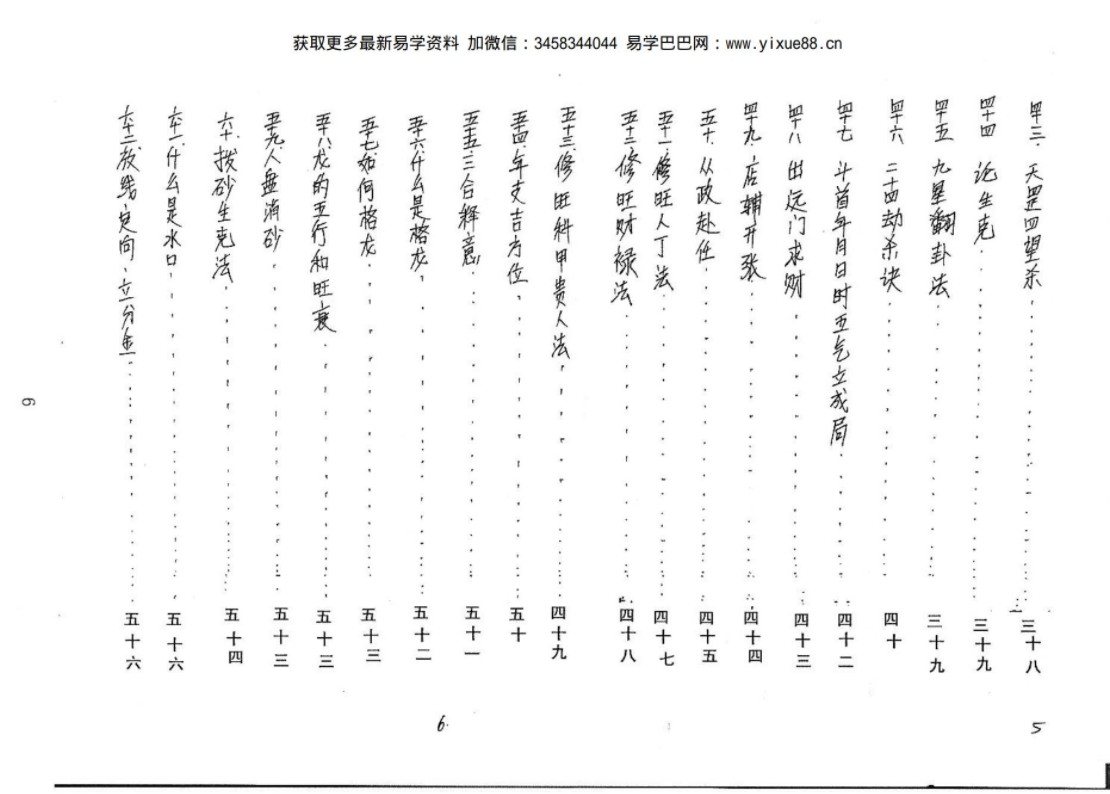 获取更多最新易学资料 加微信：3458344044 易学巴巴网：www.yixue88.cn
四十三、天罡四望杀 三十八
四十四 论生克 三十九
四十五 九星翻卦法 三十九
四十六 二十四劫杀诀 四十
四十七 斗首年月日时五气立成局 四十二
四十八 出远门求财 四十三
四十九、店辅开张 四十四
五十、从政赴任 四十五
五十一 修旺人丁法 四十七
五十二 修旺财禄法 四十八
五十三、修旺科甲贵人法 四十九
五十四、年支吉方位 五十
五十五、三合释意 五十一
五十六 什么是格龙 五十二
五十七 如何格龙 五十三
五十八 龙的五行和旺衰 五十三
五十九 人盘消砂 五十三
六十、拨砂生克法 五十四
六十一、什么是水口 五十六
六十二 放线定向、立分金 五十六
5
6
6